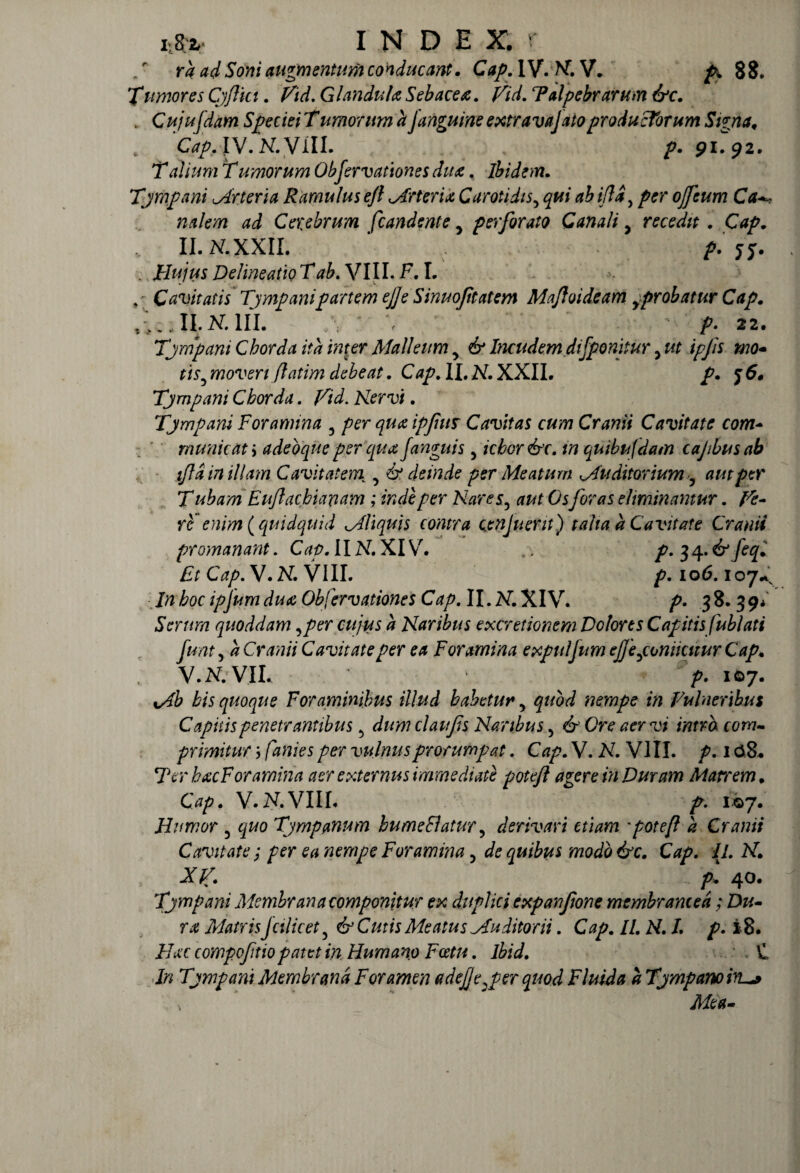 182 INDEX.
ra ad Soni augmentum conducant. Cap. IV. N. V. p. 88.
Tumores Cystici. Vid. Glandulæ Sebaceæ. Vid. Palpebrarum &c.
Cujusdam Speciei Tumorum à sanguine extravasato productorum Signa.
Cap. IV. N. VIII. p. 91. 92.
Talium Tumorum Observationes duæ. Ibidem.
Tympani Arteria Ramulus est Arteriæ Carotidis, qui ab istâ, per osseum Ca-
nalem ad Cerebrum scandente, perforato Canali, recedit. Cap.
II. N. XXII. p. 55.
Hujus Delineatio Tab. VIII. F. I.
Cavitatis Tympani partem esse Sinuositatem Mastoideam, probatur Cap.
II. N. III. p. 22.
Tympani Chorda ità inter Malleum, & Incudem disponitur, ut ipsis mo-
tis, moveri statim debeat. Cap. II. N. XXII. p. 56.
Tympani Chorda. Vid. Nervi.
Tympani Foramina, per quæ ipsius Cavitas cum Cranii Cavitate com-
municat; adeòque per quæ sanguis, ichor &c. in quibusdam casibus ab
istâ in illam Cavitatem, & deinde per Meatum Auditorium, aut per
Tubam Eustachianam; indè per Nares, aut Os foras eliminantur. Ve-
rè enim (quidquid Aliquis contra censuerit) talia à Cavitate Cranii
promanant. Cap. II N. XIV. p. 34. & seq.
Et Cap. V. N. VIII. p. 106. 107.
In hoc ipsum duæ Observationes Cap. II. N. XIV. p. 38. 39.
Serum quoddam, per cujus à Naribus excretionem Dolores Capitis sublati
sunt, à Cranii Cavitate per ea Foramina expulsum esse, coniicitur Cap.
V. N. VII. p. 107.
Ab his quoque Foraminibus illud habetur, quòd nempe in Vulneribus
Capitis penetrantibus, dum clausis Naribus, & Ore aer vi intrò com-
primitur; sanies per vulnus prorumpat. Cap. V. N. VIII. p. 108.
Per hæc Foramina aer externus immediatè potest agere in Duram Matrem.
Cap. V. N. VIII. p. 107.
Humor, quo Tympanum humectatur, derivari etiam potest à Cranii
Cavitate; per ea nempe Foramina, de quibus modò &c. Cap. II. N.
XV. p. 40.
Tympani Membrana componitur ex duplici expansione membraneâ; Du-
ræ Matris scilicet, & Cutis Meatus Auditorii. Cap. II. N. I. p. 18.
Hæc compositio patet in Humano Fœtu. Ibid.
In Tympani Membranâ Foramen adesse, per quod Fluida à Tympano in
Mea-